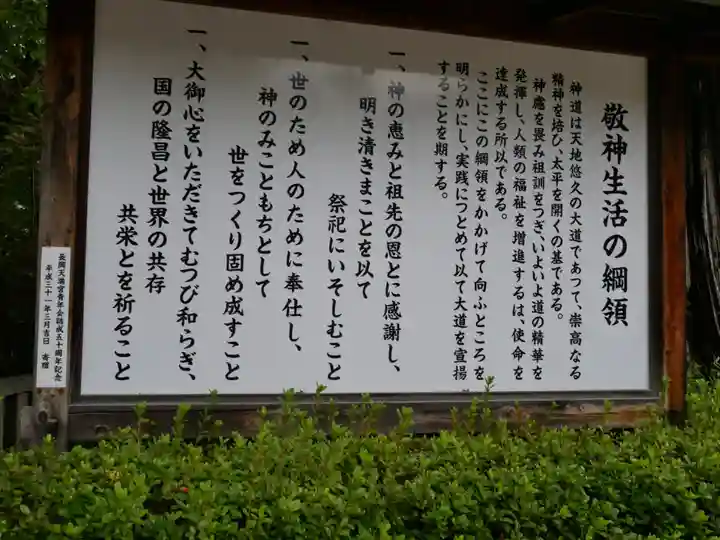 敬神生活の綱領
神道は天地悠久の大道であつて、崇高なる
精神を培ひ、太平を開くの基である。
神慮を畏み祖訓をつぎ、いよいよ道の精華を
発揮し、人類の福祉を増進するは、使命を
達成する所以である。
ここにこの綱領をかかげて向ふところを
明らかにし、実践につとめて以て大道を宣揚
することを期する。
一、神の恵みと祖先の恩とに感謝し、
明き清きまことを以て
祭祀にいそしむこと
一、世のため人のために奉仕し、
神のみこともちとして
世をつくり固め成すこと
一、大御心をいただきてむつび和らぎ、
国の隆昌と世界の共存
共栄とを祈ること
長岡天満宮青年会結成五十周年記念
平成三十一年三月吉日 寄贈